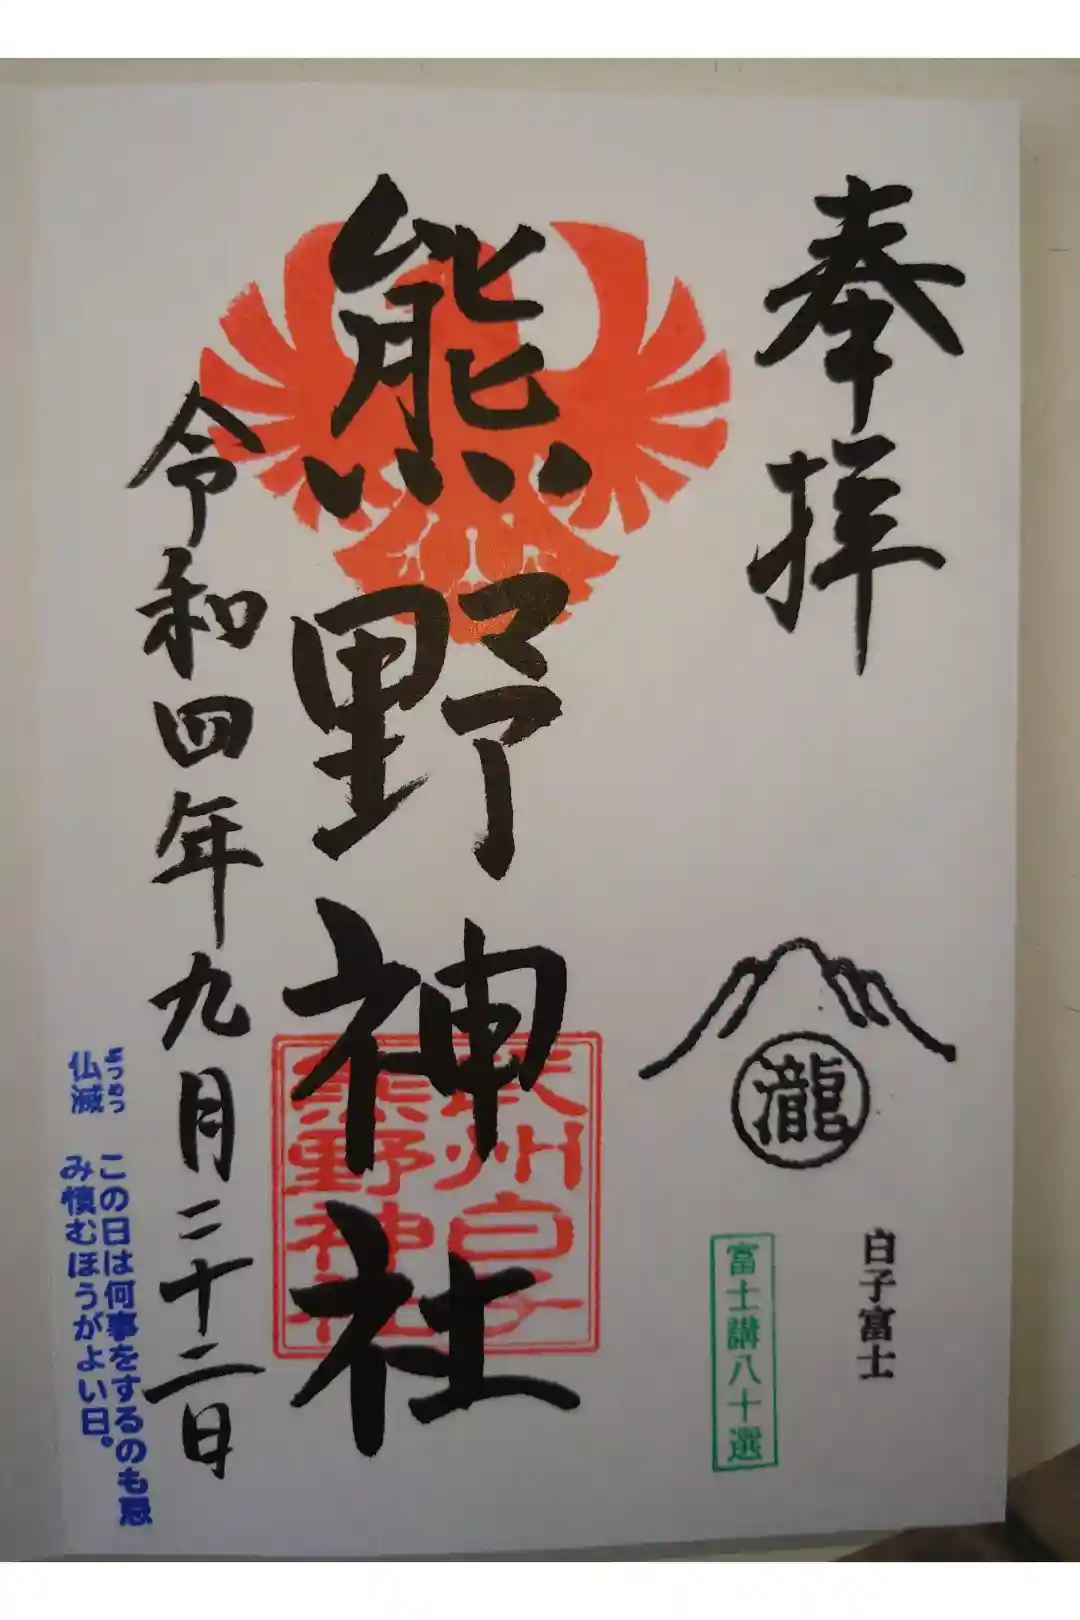 奉拝
瀧
白子富士
富士講八十選
熊野神社
武州白子
熊野神社
令和四年九月二十二日
ぶつめつ
仏滅 この日は何事をするのも忌
み慎むほうがよい日。